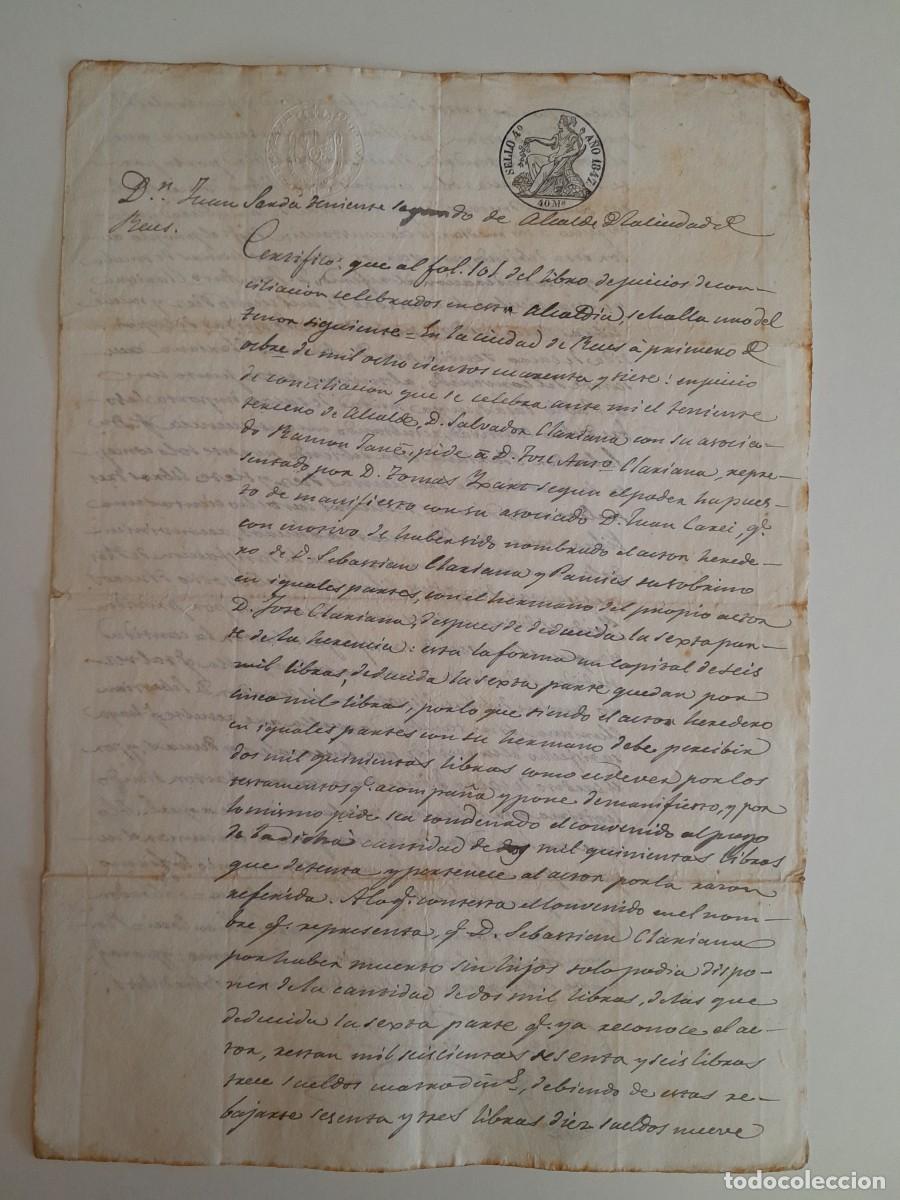 SELLO 4º AÑO 1847.
40 Ms
Dn. Juan Sardá teniente segundo de Alcalde dla ciudad d
Reus.
Certifico: que al fol. 101. del libro de juicios de con-
ciliacion celebrados en esta Alcaldia, se halla uno del
tenor siguiente = En la ciudad de Reus à primero d
octbre de mil ocho cientos cuarenta y siete: en juicio
de conciliacion que se celebra ante mi el teniente
tercero de Alcalde, D. Salvador Clariana con su asocia-
do Ramon Tané, pide à D. Jose Anto Clariana, repre-
sentado por D. Tomas Ixart segun el poder ha pues-
to de manifiesto con su asociado D. Juan Carei, q.
con motivo de haber sido nombrado el actor herede-
ro de D. Sebastian Clariana y Pamies su sobrino
en iguales partes, con el hermano del propio actor
D. Jose Clariana, despues de deducida la sexta par-
te de la herencia: esta la forma un capital de seis
mil libras, deducida la sexta parte quedan por
cinco mil libras, por lo que siendo el actor heredero
en iguales partes con su hermano debe percibir
dos mil quinientas libras como es de ver por los
testamentos q. acompaña y pone de manifiesto, y por
lo mismo pide sea condenado el convenido al pago
de la dicha cantidad de dos mil quinientas libras
que detenta y pertenece al actor por la razon
referida. A lo q. contesta el convenido en el nom-
bre q. representa, q. D. Sebastian Clariana
por haber muerto sin hijos solo podia dispo-
ner de la cantidad de dos mil libras, de las que
deducida la sexta parte q. ya reconoce el ac-
tor, restan mil seiscientas sesenta y seis libras
trece sueldos cuatro din.s, debiendo de estas re-
bajarse sesenta y tres libras diez sueldos nueve
todocoleccion